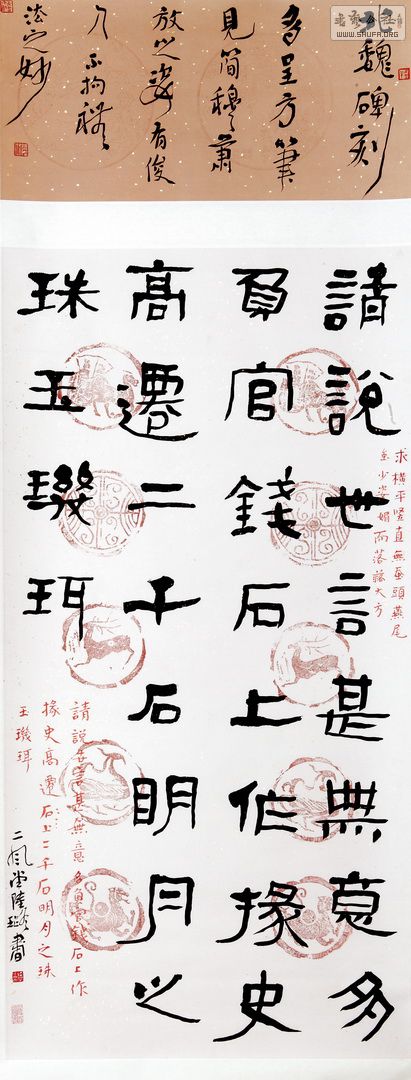 WWW.SHUFA.ORG
魏碑刻
多呈方筆
見簡穆蕭
放之姿有俊
不拘
法之妙
請說世言甚無意多
負官錢石上作掾史
高遷二千石明月之
珠玉璣珥
求橫平豎直無蠶頭燕尾
少姿媚而落落大方
請說世言甚無意多負官錢石上作
掾史高遷石上二千石明月之珠
玉璣珥
二風堂陸書